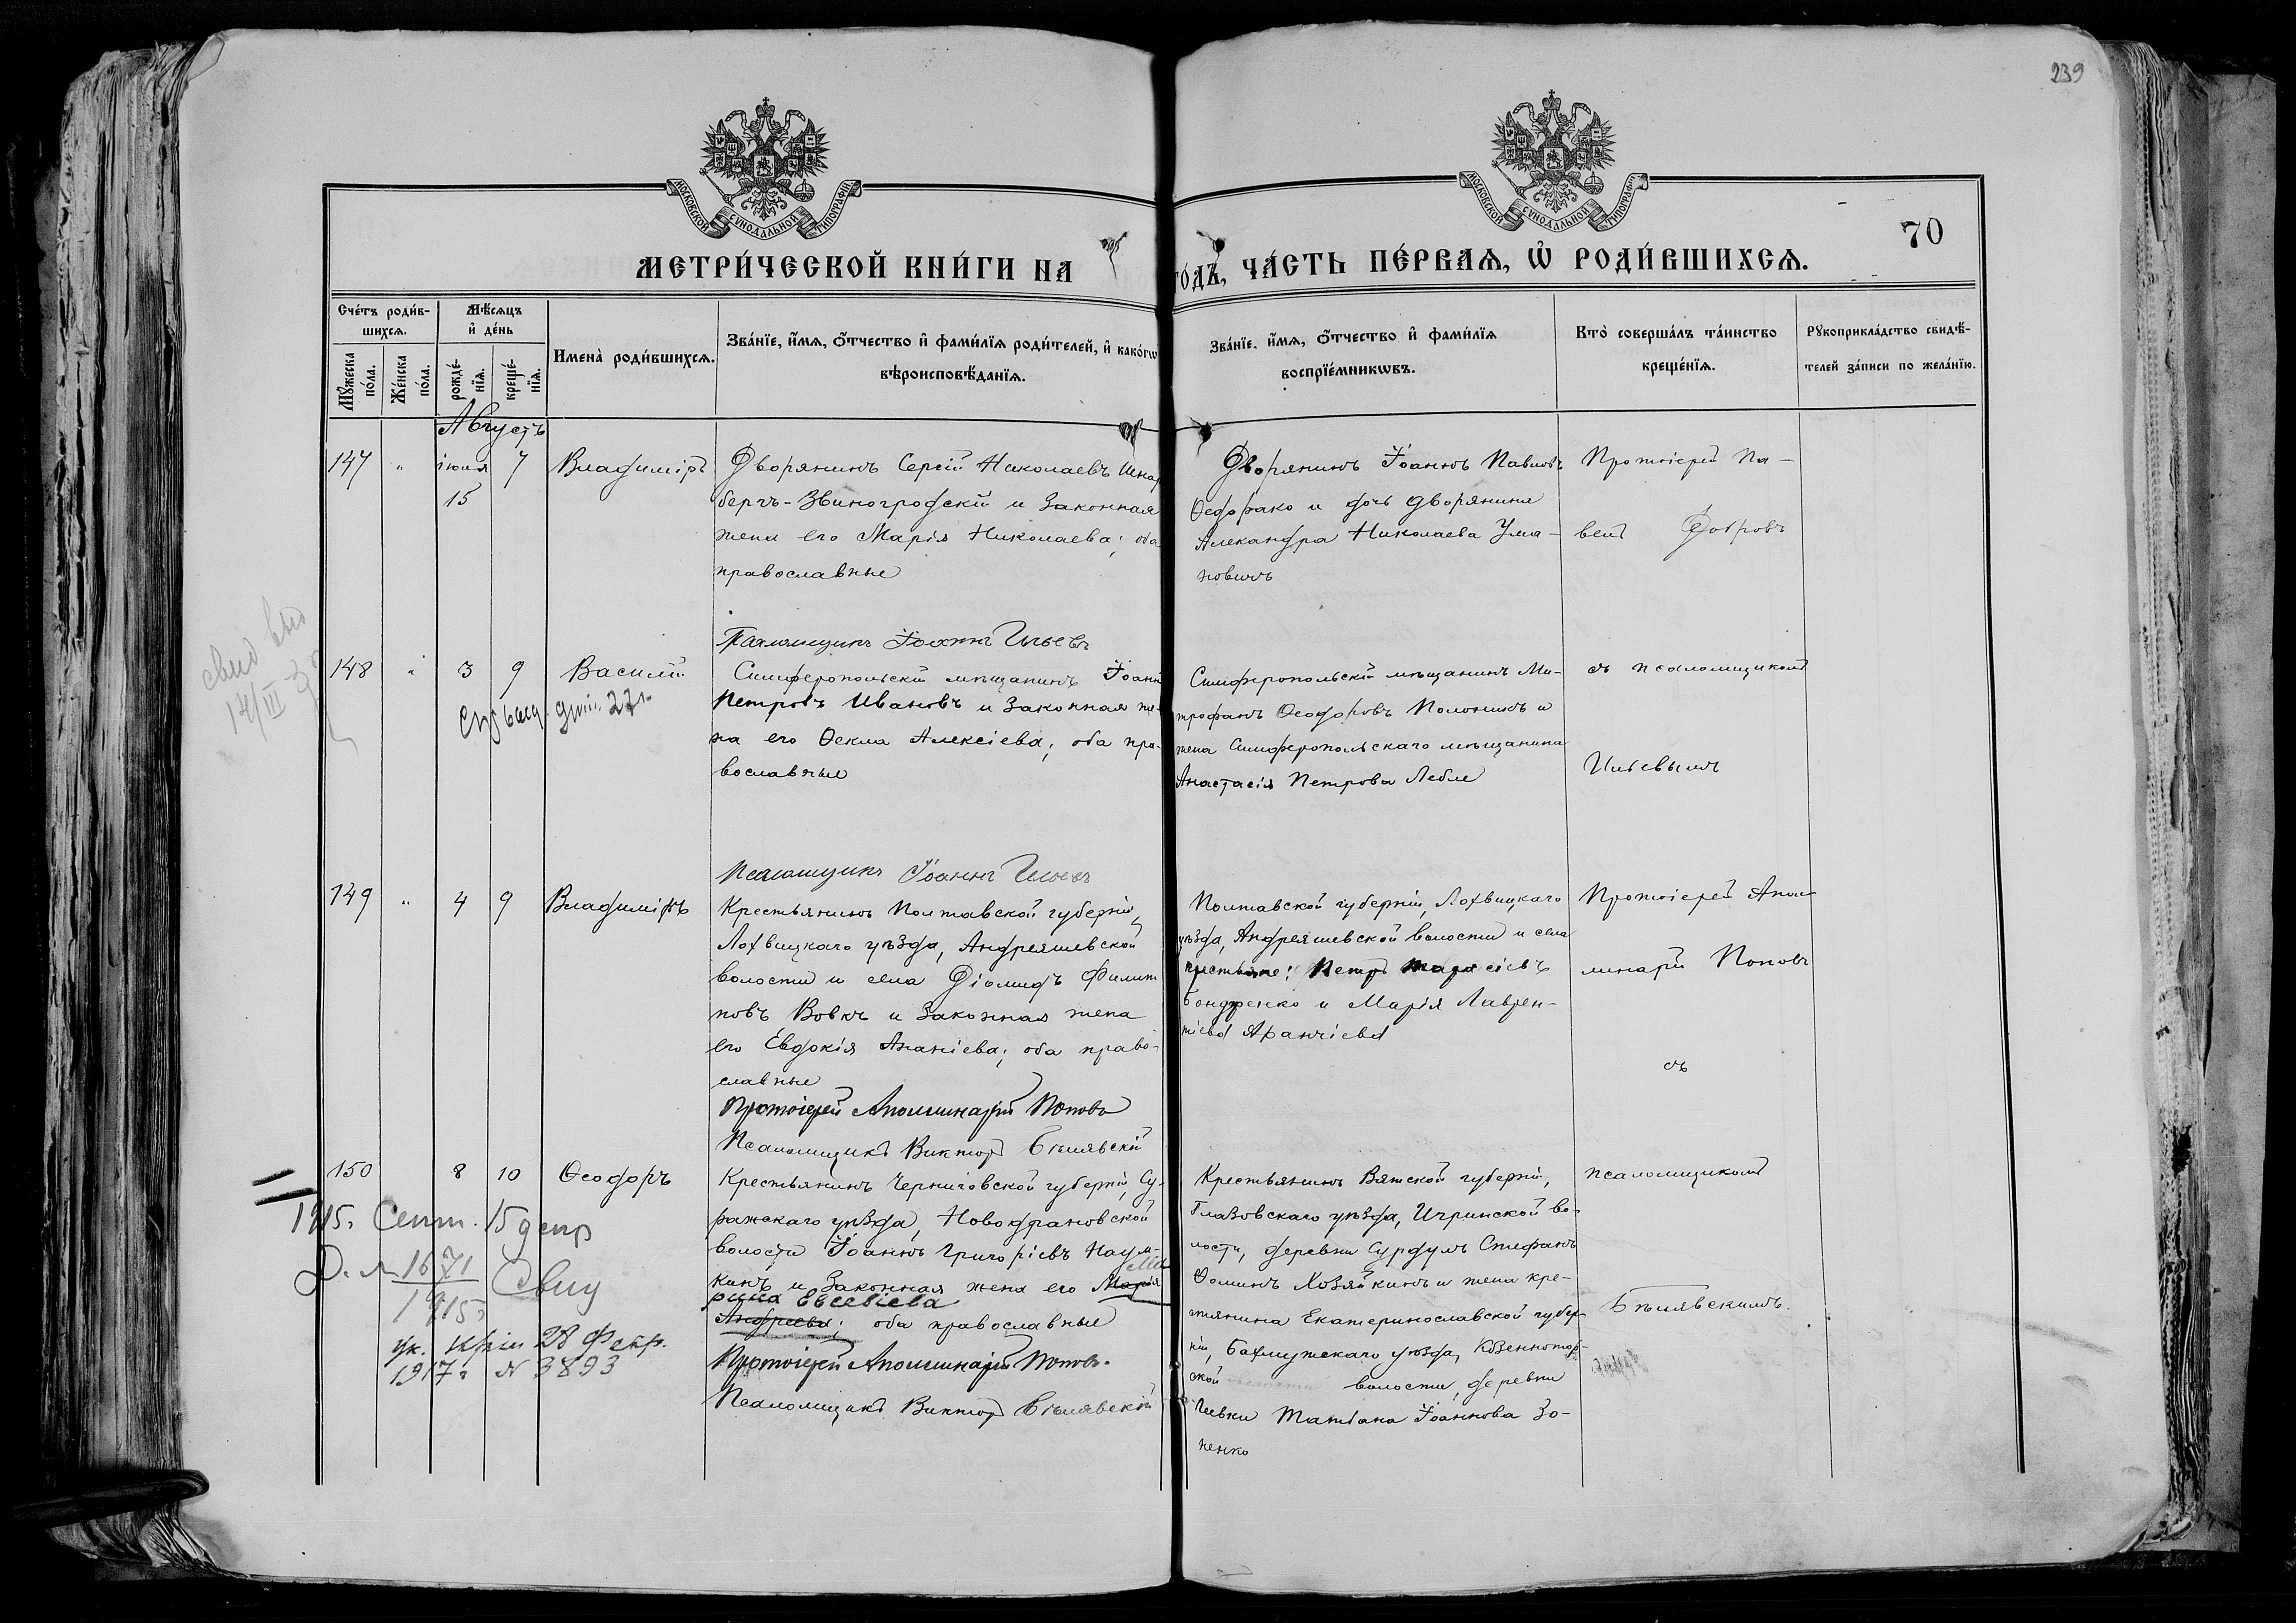 239
МОСКОВСКОЙ СѴНОДАЛЬНОЙ ТИПОГРАФІИ
МОСКОВСКОЙ СѴНОДАЛЬНОЙ ТИПОГРАФІИ
70
МЕТРИ́ЧЕСКОЙ КНИ́ГИ НА
ГО́ДЪ, ЧА́СТЬ ПЕ́РВАѦ, Ѡ҆ РОДИ́ВШИХСѦ.
Сче́тъ роди́в-
шихсѧ.
Мꙋ́жеска
по́ла.
Же́нска
по́ла.
Мѣ́сѧцъ
и҆ де́нь
рожде́-
нїѧ.
креще́-
нїѧ.
Имена̀ роди́вшихсѧ.
Зва́нїе, и҆́мѧ, ѻ҆́тчество и҆ фами́лїѧ роди́телей, и҆ како́гѡ
вѣроисповѣ́данїѧ.
Зва́нїе, и҆́мѧ, ѻ҆́тчество и҆ фами́лїѧ
воспрїе́мникѡвъ.
Кто̀ соверша́лъ та́инство
креще́нїѧ.
Рꙋкоприкла́дство свидѣ́-
телей за́писи по жела́нїю.
Августъ
147 " іюля 7 Владиміръ
15
Дворянинъ Сергій Николаевъ
берчъ-Звиногродскій и законная
жена его Марія Николаева; оба
православные
Псаломщикъ Іоаннъ Ильевъ
Дворянинъ Іоаннъ Павловъ
и дочь дворянина
Александра Николаева Ума-
новичъ
Протоіерей Па-
велъ
148 " 3 9 Василій
27
Симферопольскій мѣщанинъ Іоаннъ
Петровъ Ивановъ и законная же-
на его Ѳекла Алексіева; оба пра-
вославные
Псаломщикъ Іоаннъ Ильевъ
Симферопольскій мѣщанинъ Ми-
трофанъ Ѳеодоровъ и
жена Симферопольскаго мѣщанина
Анастасія Петрова
съ псаломщикомъ
Ильевымъ
149 " 4 9 Владиміръ
Крестьянинъ Полтавской губерніи,
Лохвицкаго уѣзда, Андреяшевской
волости и села Діомидъ Филип
повъ Вовкъ и законная жена
его Евдокія Ананіева; оба право-
славные
Протоіерей Аполлинарій Поповъ
Псаломщикъ Викторъ Бѣлявскій
Полтавской губерніи, Лохвицкаго
уѣзда, Андреяшевской волости и села
крестьяне: Петръ Тарасіевъ
Бондренко и Марія Лаврен-
тіева
Протоіерей Апол
линарій Поповъ
съ
150 8 10 Ѳеодоръ
Крестьянинъ Черниговской губерніи, Су-
ражскаго уѣзда, Новодрановской
волости Іоаннъ Григоріевъ Наум-
кинъ и законная жена его Марія
Ма
рина Евсевіева
Андреева; оба православные
Протоіерей Аполлинарій Поповъ.
Псаломщикъ Викторъ Бѣлявскій
Крестьянинъ Вятской губерніи,
Глазовскаго уѣзда, Игринской во-
лости, деревни Сурдумъ Стефанъ
Ѳоминъ Хозяйкинъ и жена кре-
стьянина Екатеринославской губер
ніи, Бахмутскаго уѣзда,
ской волости, деревни
Татіана Іоаннова Зо-
ненко
псаломщикомъ
Бѣлявскимъ.
1915. Сент. 15 дня
Д. № 1671
1915 г.
28 Февр.
1917 г. № 3893